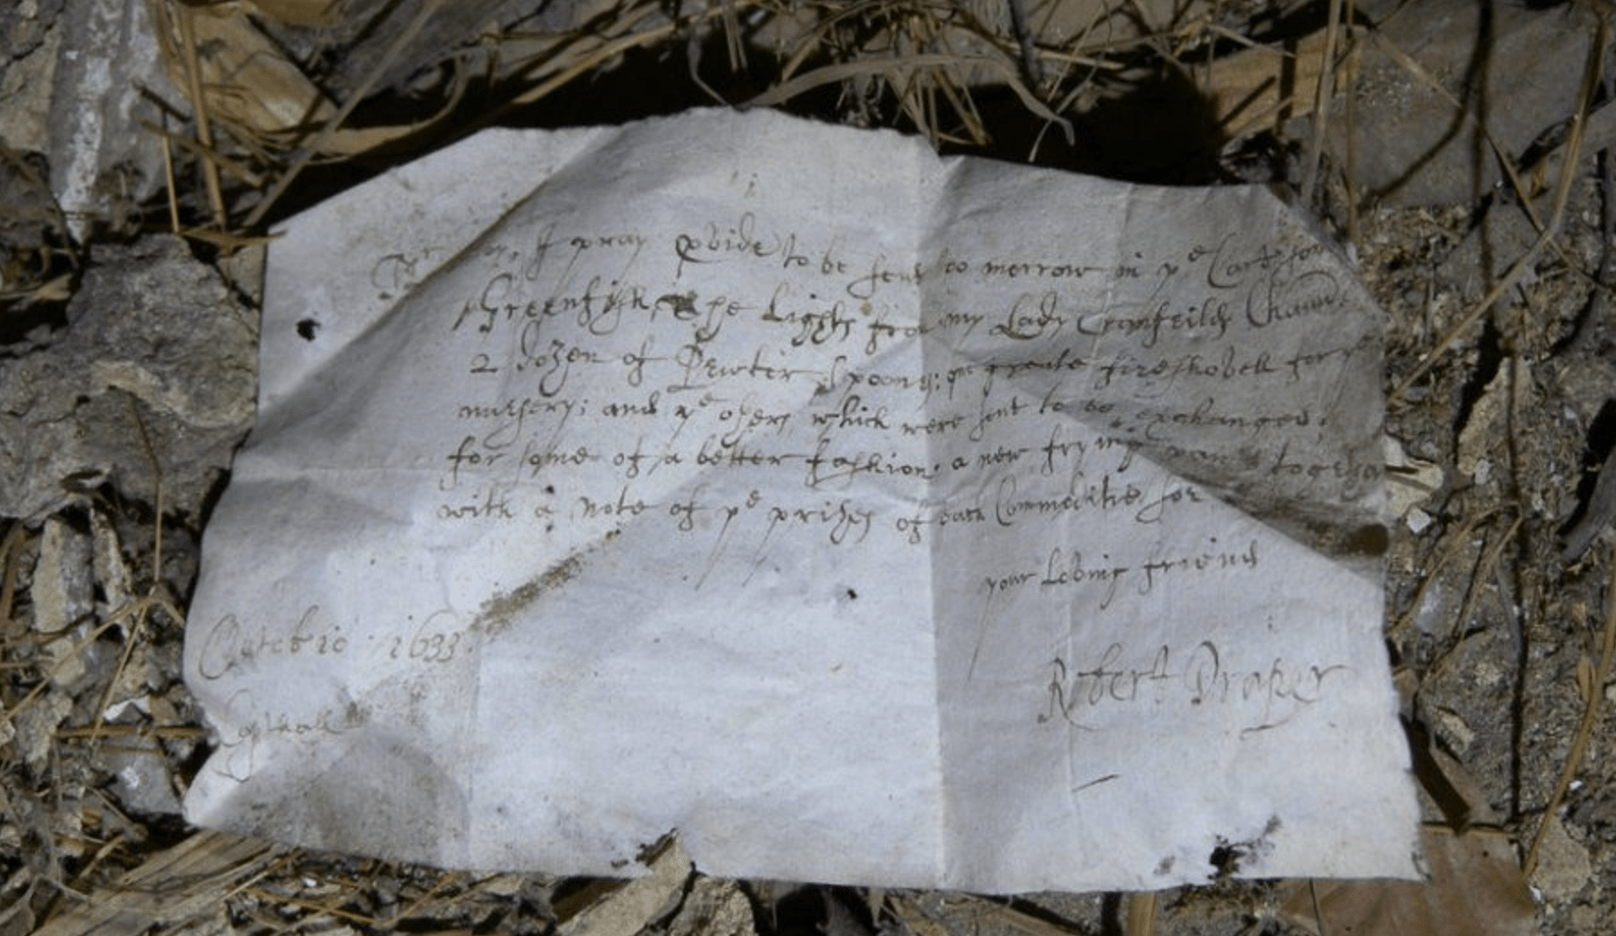 I pray pvide to be sent to morrow in ye Cart some
Greenfish, ye Lights from my Lady Cranfeilds Cham
2 dozen of Pewter Spoons: one greate fireshovell for ye
nursery; and ye others which were sent to be exchanged
for some of a better fashion, a new frying pan together
with a note of ye prises of such Commoditie for
your loving friend
Robert Draper
Octob 1633
Copthall